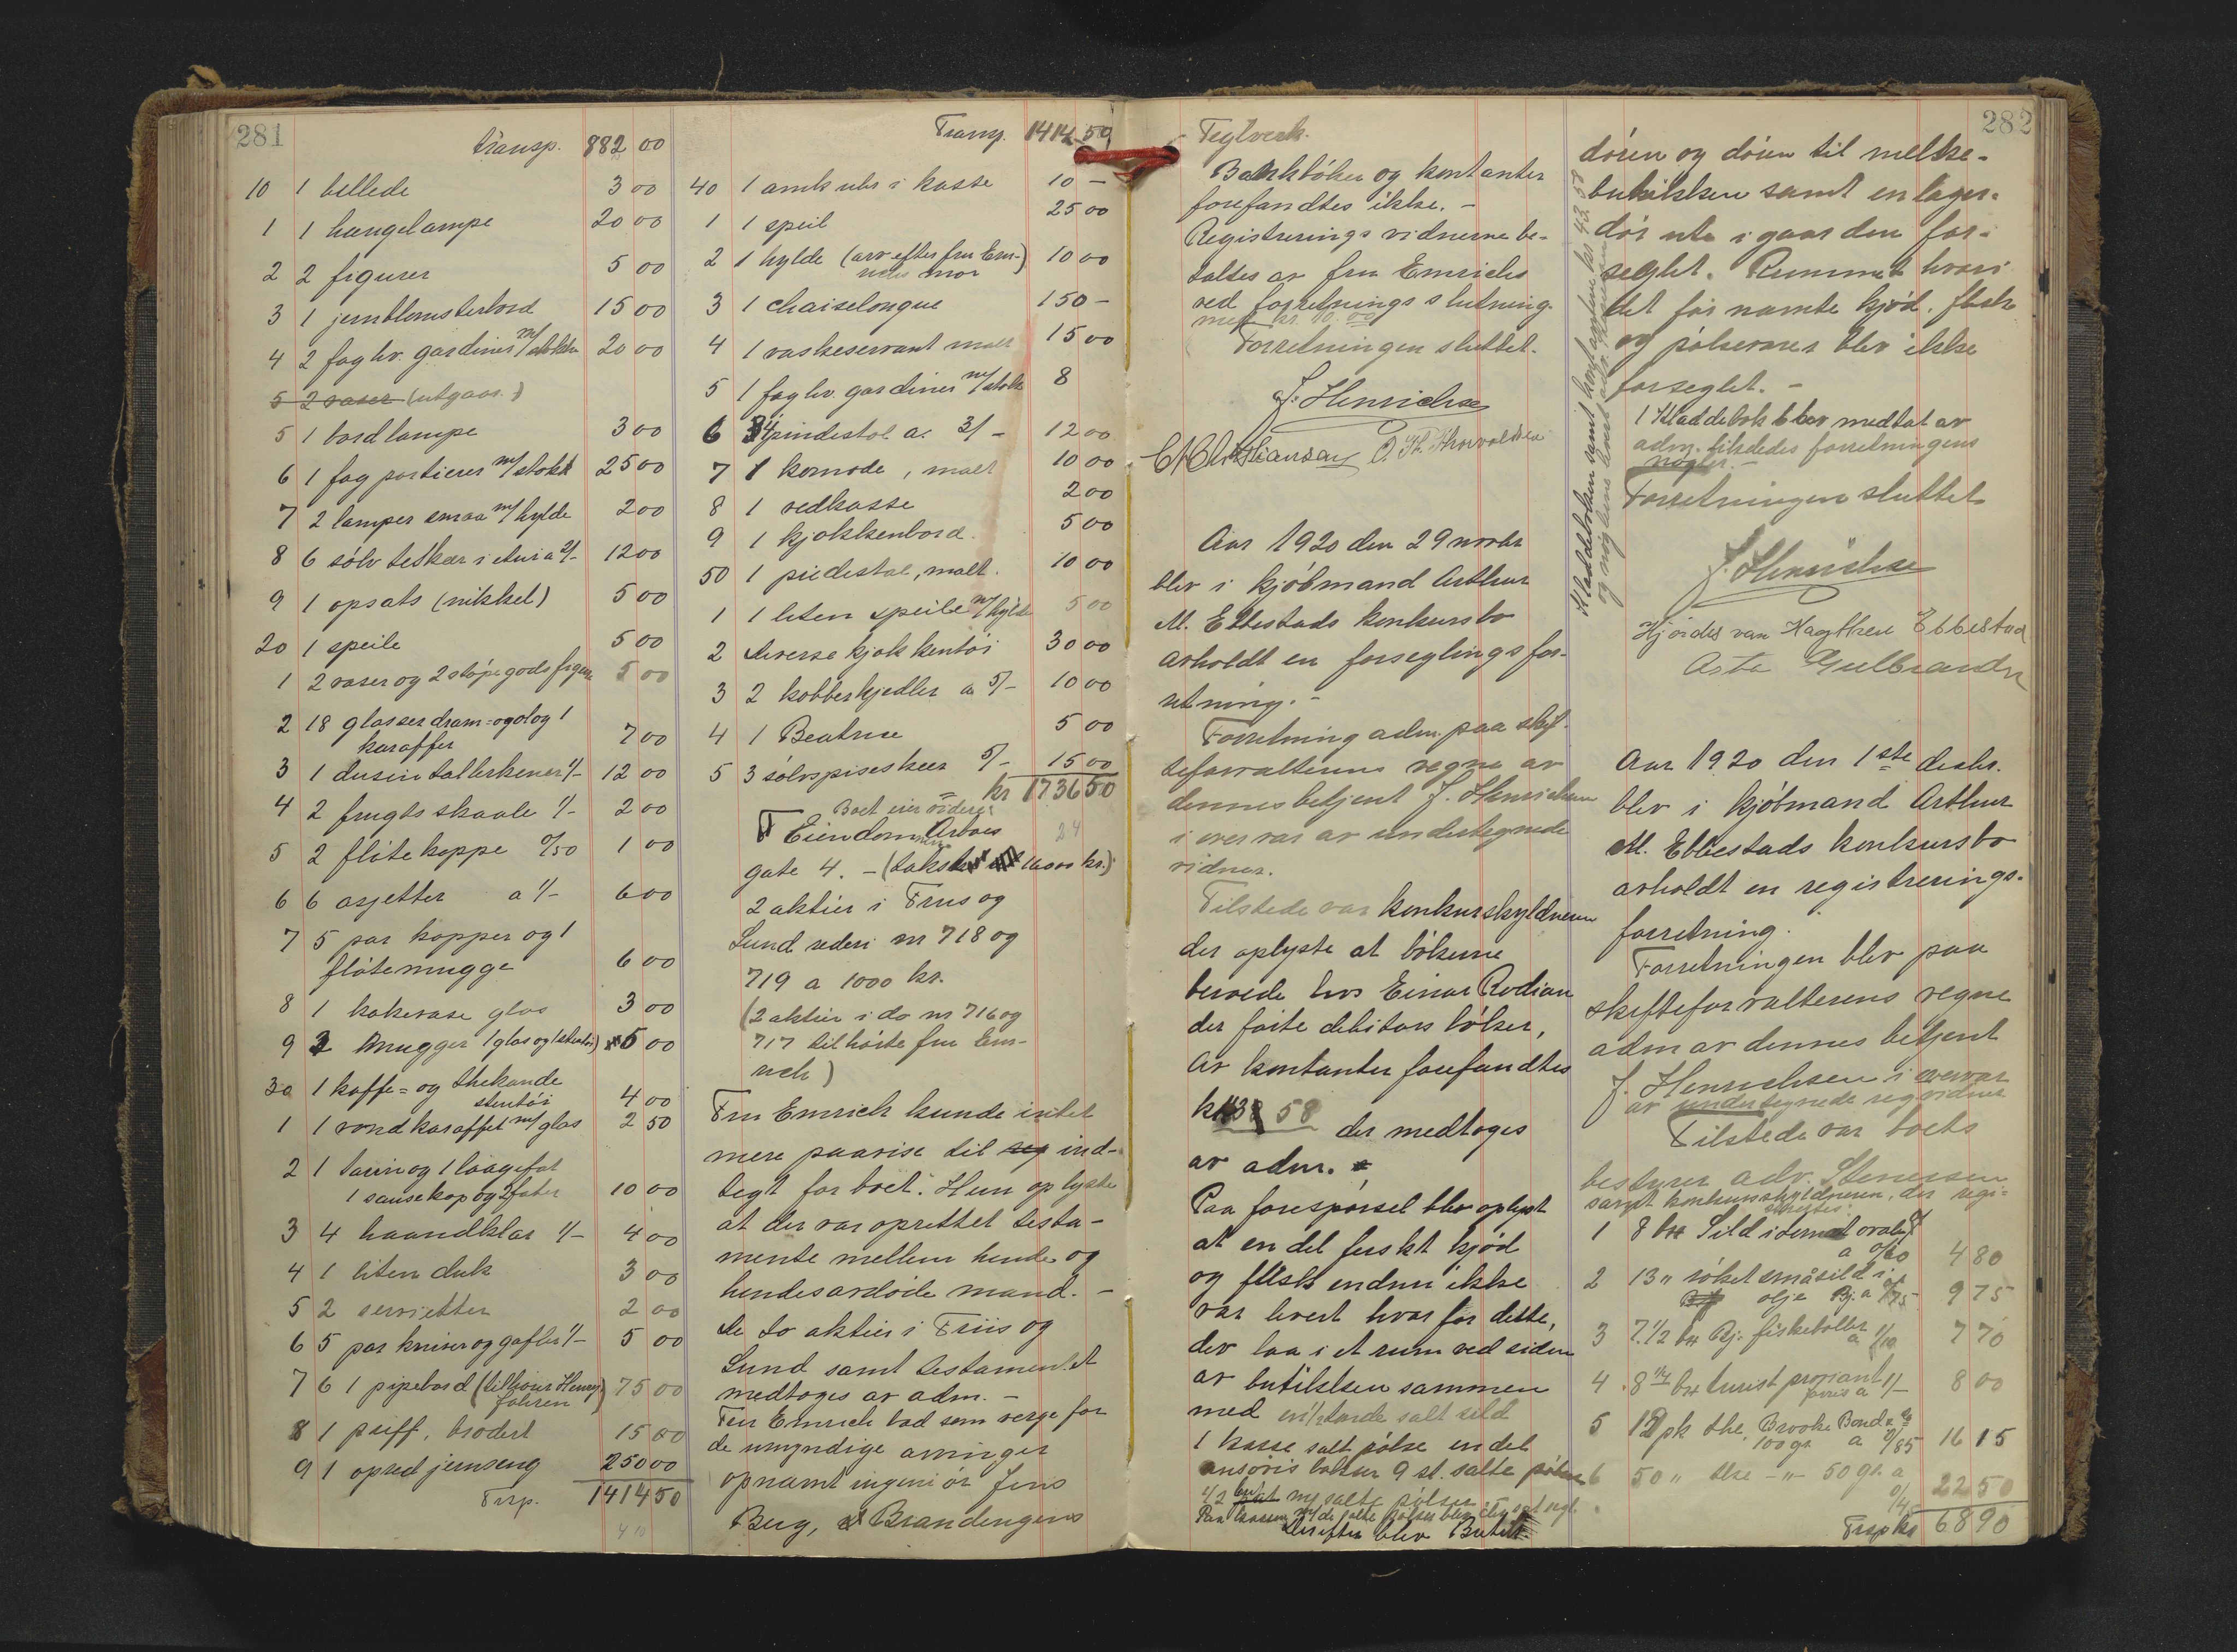 281
Transp. 882 00
10 1 billede 3 00
1 1 hængelampe 20 00
2 2 figurer 5 00
3 1 jernblomsterbord 15 00
4 2 fag hv. gardiner m/stokke 20 00
5 2 vaser (utgaar.)
5 1 bordlampe 3 00
6 1 fag portierer m/stokk 25 00
7 2 lamper smaa m/hylde 2 00
8 6 sølv teskeer i etui a 2/- 12 00
9 1 opsats (nikkel) 5 00
20 1 speile 5 00
1 2 vaser og 2 støpegods figurer 5 00
2 18 glasser dram= og ølog 1
karaffer 7 00
3 1 dusin tallerkener 1/- 12 00
4 2 frugtsskaale 1/- 2 00
5 2 fløtekoppe 0/50 1 00
6 6 asjetter a 1/- 6 00
7 5 par kopper og 1
fløtemugge 6 00
8 1 kakevase glas 3 00
9 2 mugger 1 glas og 1 stentøi) 5 00
30 1 kaffe= og thekande
stentøi 4 00
1 1 vandkaraffel m/glas 2 50
2 1 terrin og 1 laagefat
1 sausekop og 2 fater 10 00
3 4 haandklær 1/- 4 00
4 1 liten duk 3 00
5 2 servietter 2 00
6 5 par kniver og gafler 1/- 5 00
7 6 1 pipebord (tilhører Henry
75 00
8 1 puff, brodert 15 00
9 1 opred jernseng 250 00
Trsp. 1414 50
Transp. 1414 50
40 1 amk uhr i kasse 10 -
1 1 speil 25 00
2 1 hylde (arv efter fru Em-
richs mor) 10 00
3 1 chaiselongue 150 -
4 1 vaskeservant malt 15 00
5 1 fag hv. gardiner m/stokk 8
6 4 pindestol a. 3/- 12 00
7 1 komode, malt 10 00
8 1 vedkasse 2 00
9 1 kjøkkenbord. 5 00
50 1 piedestal, malt. 10 00
1 1 liten speile m/hylde 5 00
2 diverse kjøkkentøi 30 00
3 2 kobberkjedler a 5/- 10 00
4 1 Beatrice 5 00
5 3 sølvspiseskeer 5/- 15 00
kr 1736 50
Boet eier videre:
Eiendommen Arbos
gate 4. - (takst 16000 kr.)
2 aktier i Friis og
Lund rederi nr 718 og
719 a 1000 kr.
(2 aktier i do nr 716 og
717 tilhørte fru Em-
rich)
Fru Emrich kunde intet
mere paavise til ind-
tegt for boet. Hun oplyste
at der var oprettet testa-
mente mellem hende og
hendes avdøde mand. -
De to aktier i Friis og
Lund samt testamentet
medtoges av adm. -
Fru Emrich bad som verge for
de umyndige arvinger
opnævnt ingeniør Jens
Berg, Brandengens
Teglverk.
Bankbøker og kontanter
forefandtes ikke. -
Registreringsvidnerne be-
taltes av fru Emrichs
ved forretningsslutning.
med kr. 10.00
Forretningen sluttet.
J. Henrichsen
C. Christiansen O. Th. Thorvaldsen
Aar 1920 den 29 novbr
blev i kjøbmand Arthur
M. Ebbestads konkursbo
avholdt en forseglingsfor-
retning. -
Forretning adm. paa skif-
teforvalterens vegne av
dennes betjent J. Henrichsen
i overvær av undertegnede
vidner.
Tilstede var konkursskyldneren
der oplyste at bøkerne
beroede hos Einar Rodian
der førte debitors bøker,
Av kontanter forefandtes
kr 43 58 der medtoges
av adm.
Paa forespørsel blev oplyst
at en del ferskt kjød
og flesk endnu ikke
var levert hvorfor dette,
der laa i et rum ved siden
av butikken sammen
med en 1/2 tønde salt sild
1 kasse salt pølse endel
ansjovis bokser 9 st. salte pølser
Derefter blev Butik-
Kladdeboken samt kontanterne kr 43.58
282
døren og døren til melke-
butikken samt en lager-
dør ute i gaarden for-
seglet. Rummet hvori
det før nævnte kjød, flesk
og pølserner blev ikke
forseglet. -
1 Kladdebok blev medtat av
adm. tilstededes forretningens
nøgler. -
Forretningen sluttet
J. Henrichsen
Hjørdes van Haythen Ebbestad
Asta Gulbrandsen
Aar 1920 den 1ste decbr.
blev i kjøbmand Arthur
M. Ebbestads konkursbo
avholdt en registrerings-
forretning.
Forretningen blev paa
skifteforvalterens vegne
adm av dennes betjent
J. Henrichsen i overvær
av undertegnede reg vidner
Tilstede var boets
bestyrer adv. Stenersen
samt konkursskyldneren, der regi-
strertes:
1 8 bx Sild i tomat ovale
a 0/60 4 80
2 13 " røket småsild i
olje Bj. a 0/75 9 75
3 7 1/2 bx Bj. fiskeboller a 1/10 7 70
4 8 1/2 bx turist proviant
a 1/- 8 00
5 19 pk the, Brooke Bond a
100 gr. a 0/85 16 15
6 50 " the -"- 50 gr. a
0/45 22 50
Trsp kr 68 90